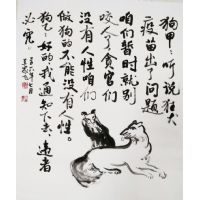 狗甲：听说狂犬
疫苗出了问题
咱们暂时就别
咬人了贪官们
没有人性咱们
做狗的不能没有人性。
狗乙：好的我通知下去，违者
必究。